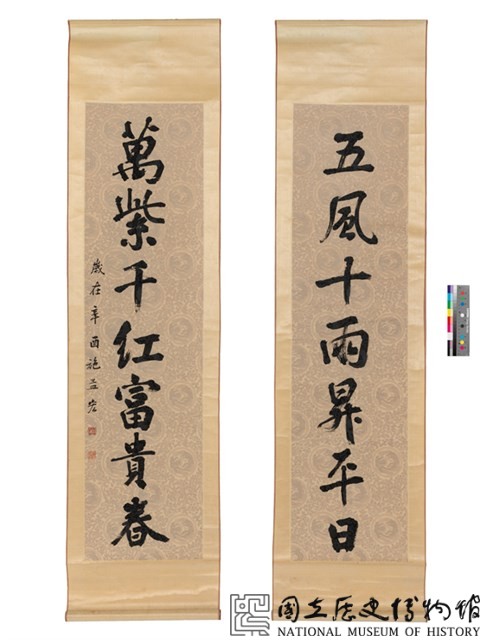 五風十雨昇平日
萬紫千紅富貴春
歲在辛酉施孟宏
國立歷史博物館
NATIONAL MUSEUM OF HISTORY